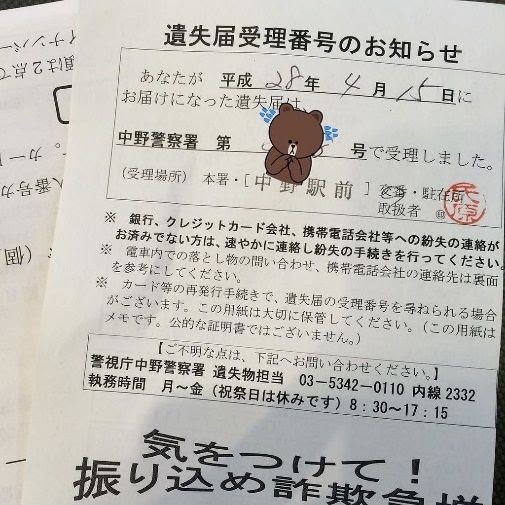 遺失届受理番号のお知らせ
あなたが 平成 28 年 4 月 15 日に
お届けになった遺失届は、
中野警察署 第 号で受理しました。
(受理場所) 本署・[中野駅前] 交番・駐在所
取扱者 ㊞
※ 銀行、クレジットカード会社、携帯電話会社等への紛失の連絡が
お済みでない方は、速やかに連絡し紛失の手続きを行ってください。
※ 電車内での落とし物の問い合わせ、携帯電話会社の連絡先は裏面
を参考にしてください。
※ カード等の再発行手続きで、遺失届の受理番号を尋ねられる場合
がございます。この用紙は大切に保管してください。(この用紙は
メモです。公的な証明書ではございません。)
【ご不明な点は、下記へお問い合わせください。】
警視庁中野警察署 遺失物担当 03-5342-0110 内線 2332
執務時間 月~金(祝祭日は休みです)8:30~17:15
気をつけて!
振り込め詐欺急増